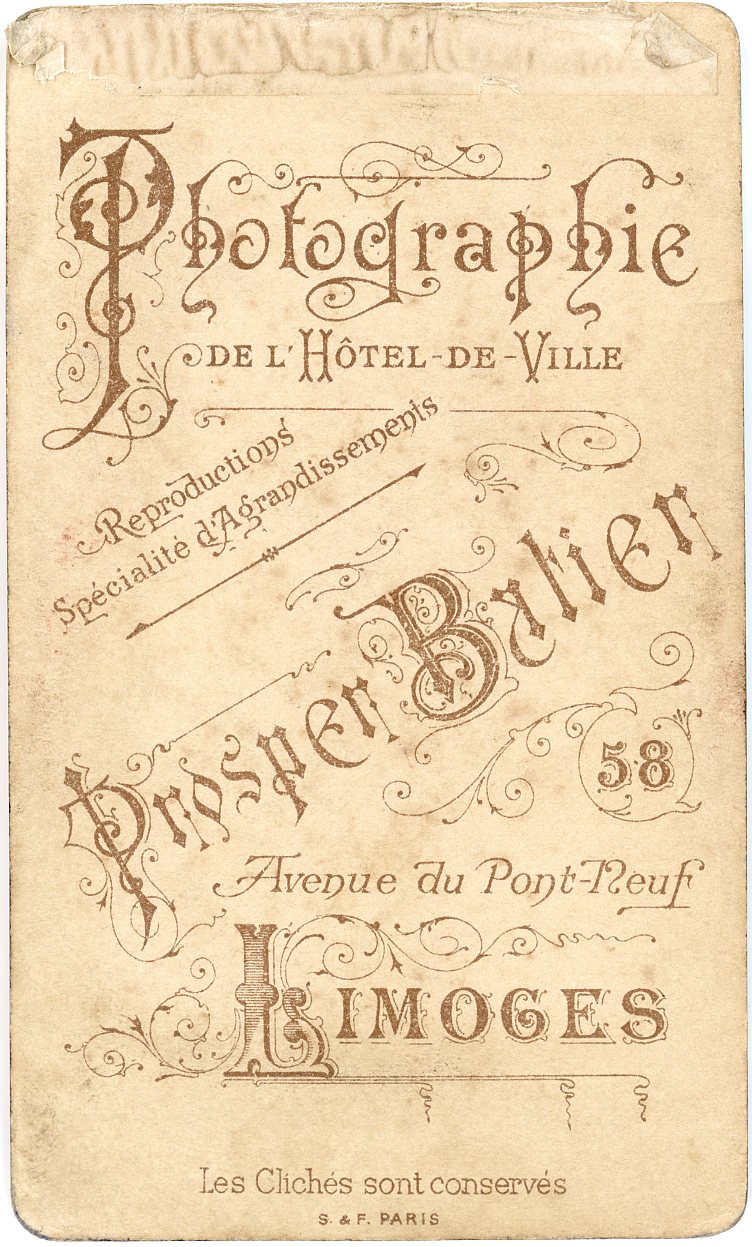 Photographie
DE L'HÔTEL-DE-VILLE
Reproductions
Spécialité d'Agrandissements
Prosper Batier
58
Avenue du Pont-Neuf
LIMOGES
Les Clichés sont conservés
S. & F. PARIS